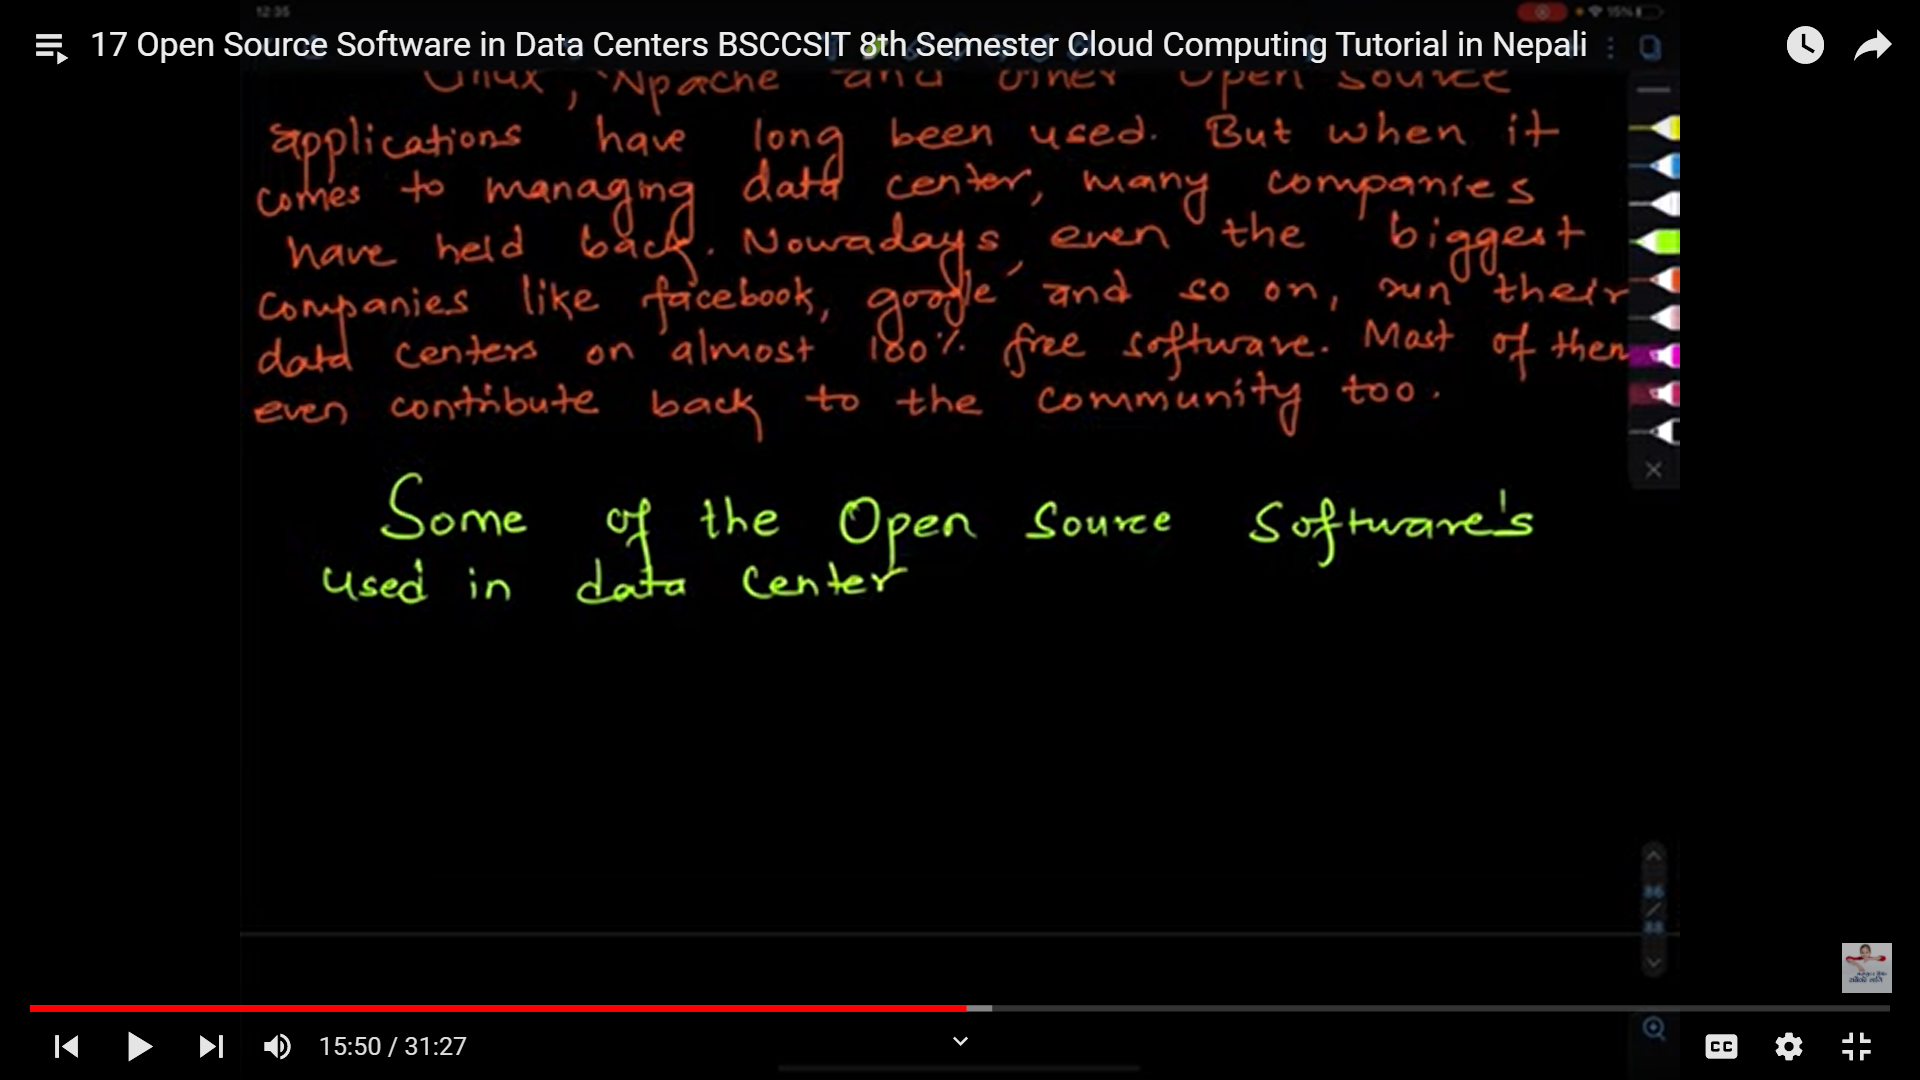 12:35
15%
17 Open Source Software in Data Centers BSCCSIT 8th Semester Cloud Computing Tutorial in Nepali
Linux, Apache and other open source
applications have long been used. But when it
comes to managing data center, many companies
have held back. Nowadays, even the biggest
companies like facebook, google and so on, run their
data centers on almost 100% free software. Most of them
even contribute back to the community too.
Some of the Open Source Software's
used in data center
86
/
88
15:50 / 31:27
CC